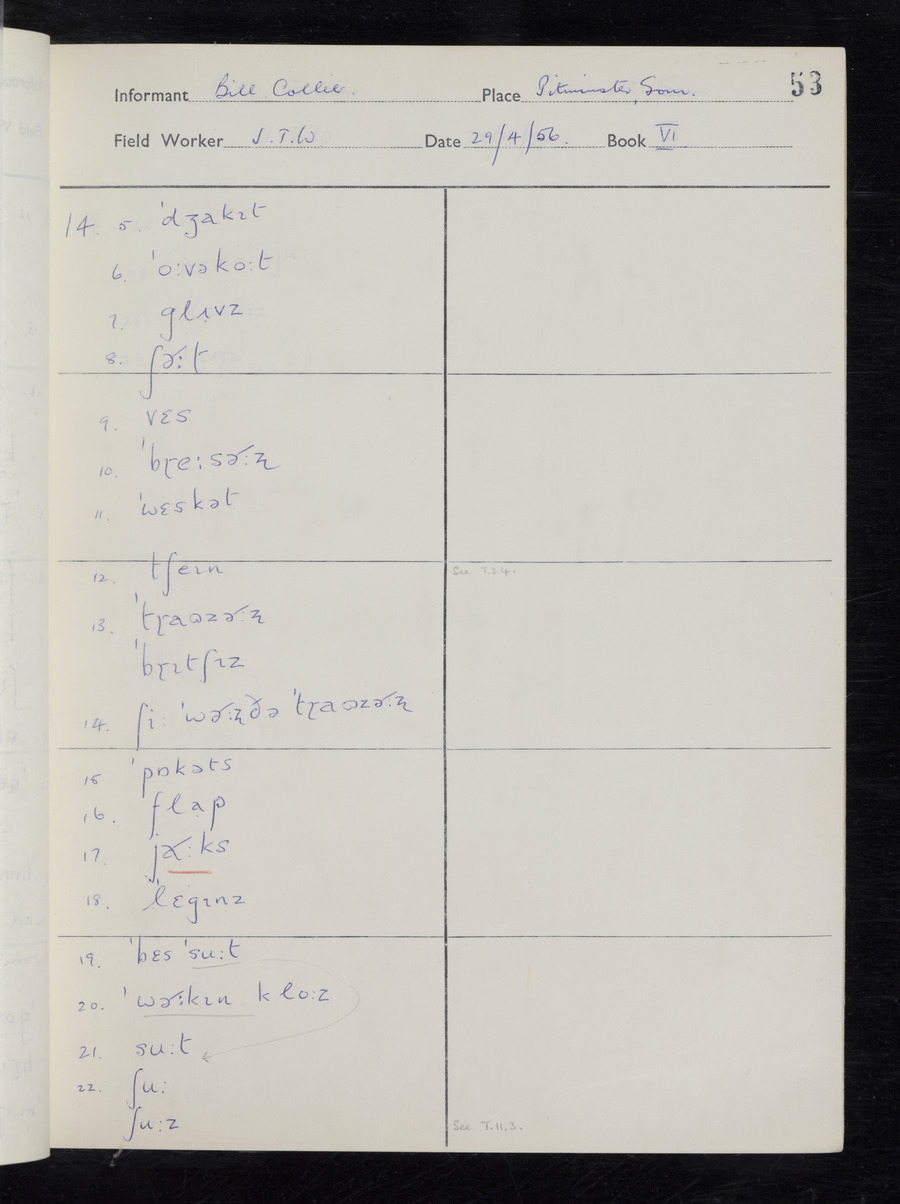 53
Informant Bill Collie. Place Pitminster, Som.
Field Worker J.T.W Date 29/4/56. Book VI
14. 5. ˈdʒakɪt
6. ˈoːvəkoːt
7. glʌvz
8. ʃɚːt
9. vɛs
10. ˈbɽeːsɚːʐ
11. ˈwɛskət
12. tʃeɪn
See T.24.
13. ˈtɽaʊzɚːʐ
ˈbɽɪtʃɪz
14. ʃiː ˈwɚːʐðə ˈtɽaʊzɚːʐ
15 ˈpɒkəts
16. flap
17. jɑ˞ːks
18. ˈlɛgɪnz
19. ˈbɛs ˈsuːt
20. ˈwɚːkɪn kloːz
21. suːt
22. ʃuː
ʃuːz
See T.11.3.